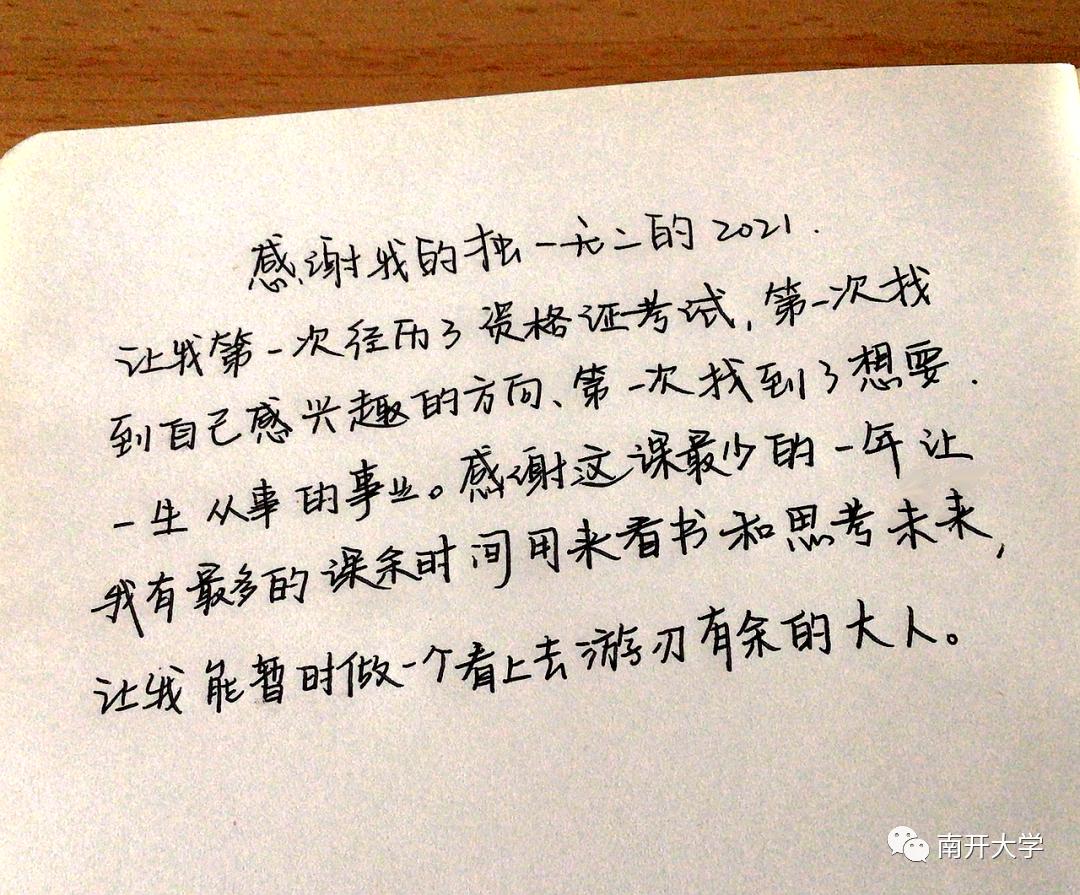 感谢我的独一无二的2021.
让我第一次经历了资格证考试,第一次找
到自己感兴趣的方向、第一次找到了想要.
一生从事的事业。感谢这课最少的一年让
我有最多的课余时间用来看书和思考未来,
让我能暂时做一个看上去游刃有余的大人。
南开大学